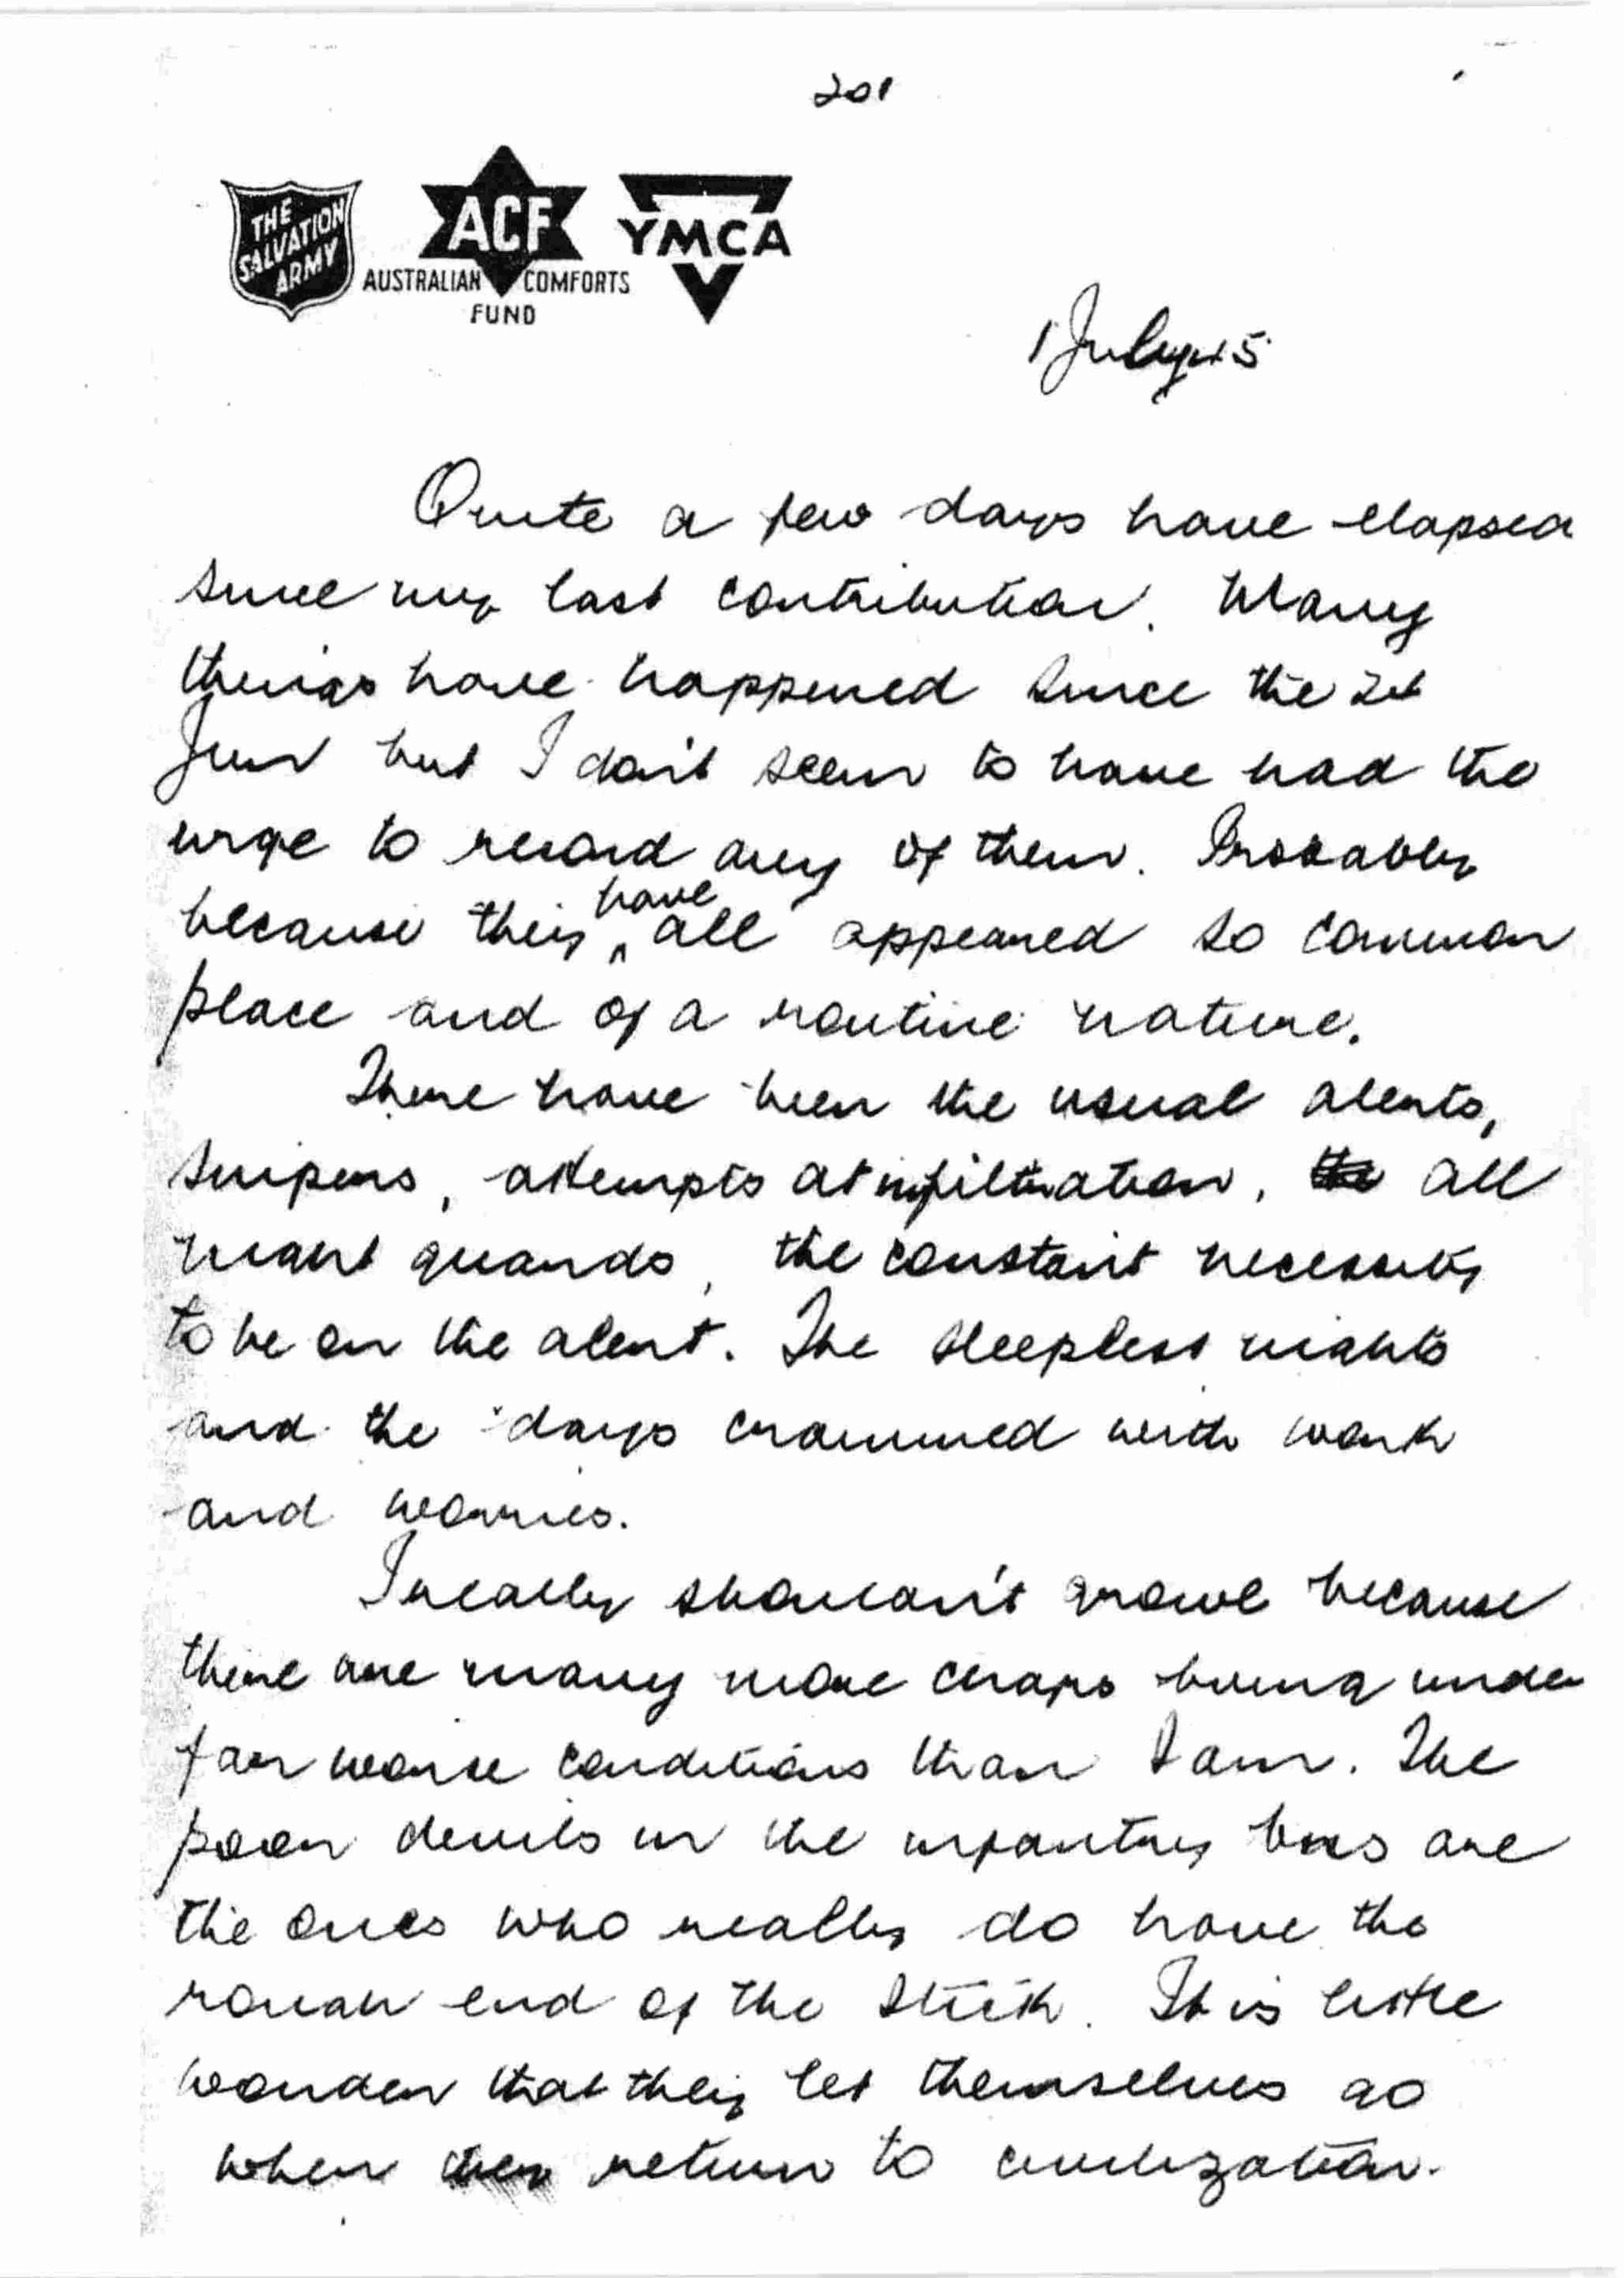 201
THE
SALVATION
ARMY
ACF
AUSTRALIAN COMFORTS
FUND
YMCA
1 July 45
Quite a few days have elapsed
since my last contribution. Many
things have happened since the
Jun but I don't seem to have had the
urge to record any of them. Probably
because they have all appeared so common
place and of a routine nature.
There have been the usual alerts,
snipers, attempts at infiltration, all
night guards, the constant necessity
to be on the alert. The sleepless nights
and the days crammed with work
and worries.
I really shouldn't growl because
there are many more chaps living under
far worse conditions than I am. The
poor devils in the infantry bns are
the ones who really do have the
rough end of the stick. It is little
wonder that they let themselves go
when they return to civilization.